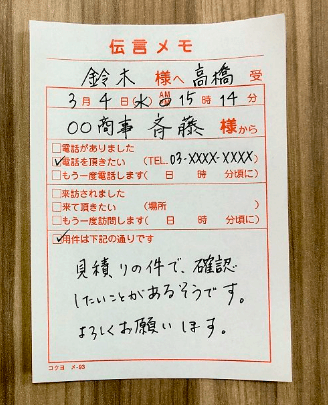 伝言メモ
鈴木 様へ 高橋 受
3月4日(水) AM PM 15時14分
〇〇商事 斉藤 様から
□電話がありました
☑電話を頂きたい (TEL. 03-XXXX-XXXX)
□もう一度電話します( 日 時 分頃に)
□来訪されました
□来て頂きたい (場所 )
□もう一度訪問します( 日 時 分頃に)
☑用件は下記の通りです
見積りの件で、確認
したいことがあるそうです。
よろしくお願いします。
コクヨ メ-93